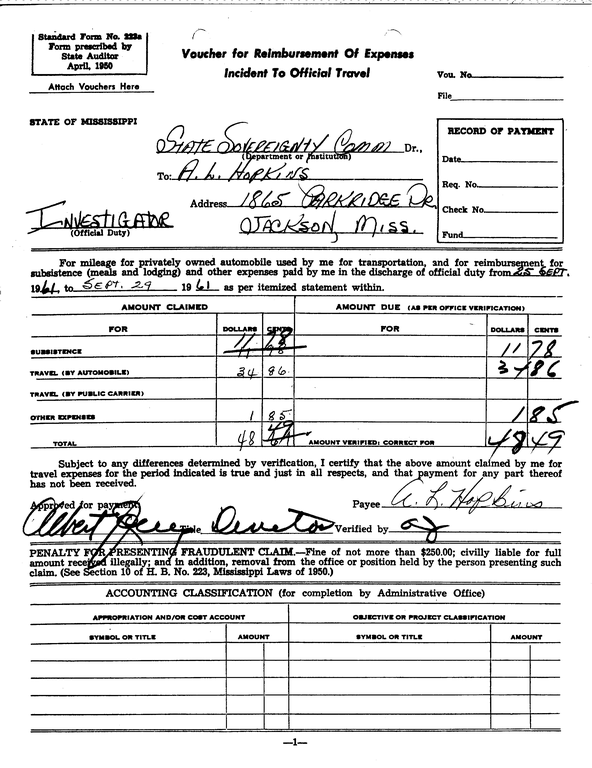 Standard Form No. 223a
Form prescribed by
State Auditor
April, 1950
Attach Vouchers Here
Voucher for Reimbursement Of Expenses
Incident To Official Travel
Vou. No.
File
STATE OF MISSISSIPPI
STATE SOVEREIGNTY COMM Dr.,
(Department or Institution)
To: A. L. HOPKINS
Address 1865 PARKRIDGE DR
JACKSON, MISS.
INVESTIGATOR
(Official Duty)
RECORD OF PAYMENT
Date
Req. No.
Check No.
Fund
For mileage for privately owned automobile used by me for transportation, and for reimbursement for
subsistence (meals and lodging) and other expenses paid by me in the discharge of official duty from 25 SEPT.
1961, to SEPT. 29 1961 as per itemized statement within.
AMOUNT CLAIMED AMOUNT DUE (AS PER OFFICE VERIFICATION)
FOR DOLLARS CENTS FOR DOLLARS CENTS
11 78
SUBSISTENCE 11 78
TRAVEL (BY AUTOMOBILE) 34 86 34 86
TRAVEL (BY PUBLIC CARRIER)
OTHER EXPENSES 1 85 1 85
49
TOTAL 48 AMOUNT VERIFIED: CORRECT FOR 48 49
Subject to any differences determined by verification, I certify that the above amount claimed by me for
travel expenses for the period indicated is true and just in all respects, and that payment for any part thereof
has not been received.
Approved for payment Payee A. L. Hopkins
Albert Title Director Verified by
PENALTY FOR PRESENTING FRAUDULENT CLAIM.—Fine of not more than $250.00; civilly liable for full
amount received illegally; and in addition, removal from the office or position held by the person presenting such
claim. (See Section 10 of H. B. No. 223, Mississippi Laws of 1950.)
ACCOUNTING CLASSIFICATION (for completion by Administrative Office)
APPROPRIATION AND/OR COST ACCOUNT OBJECTIVE OR PROJECT CLASSIFICATION
SYMBOL OR TITLE AMOUNT SYMBOL OR TITLE AMOUNT
—1—